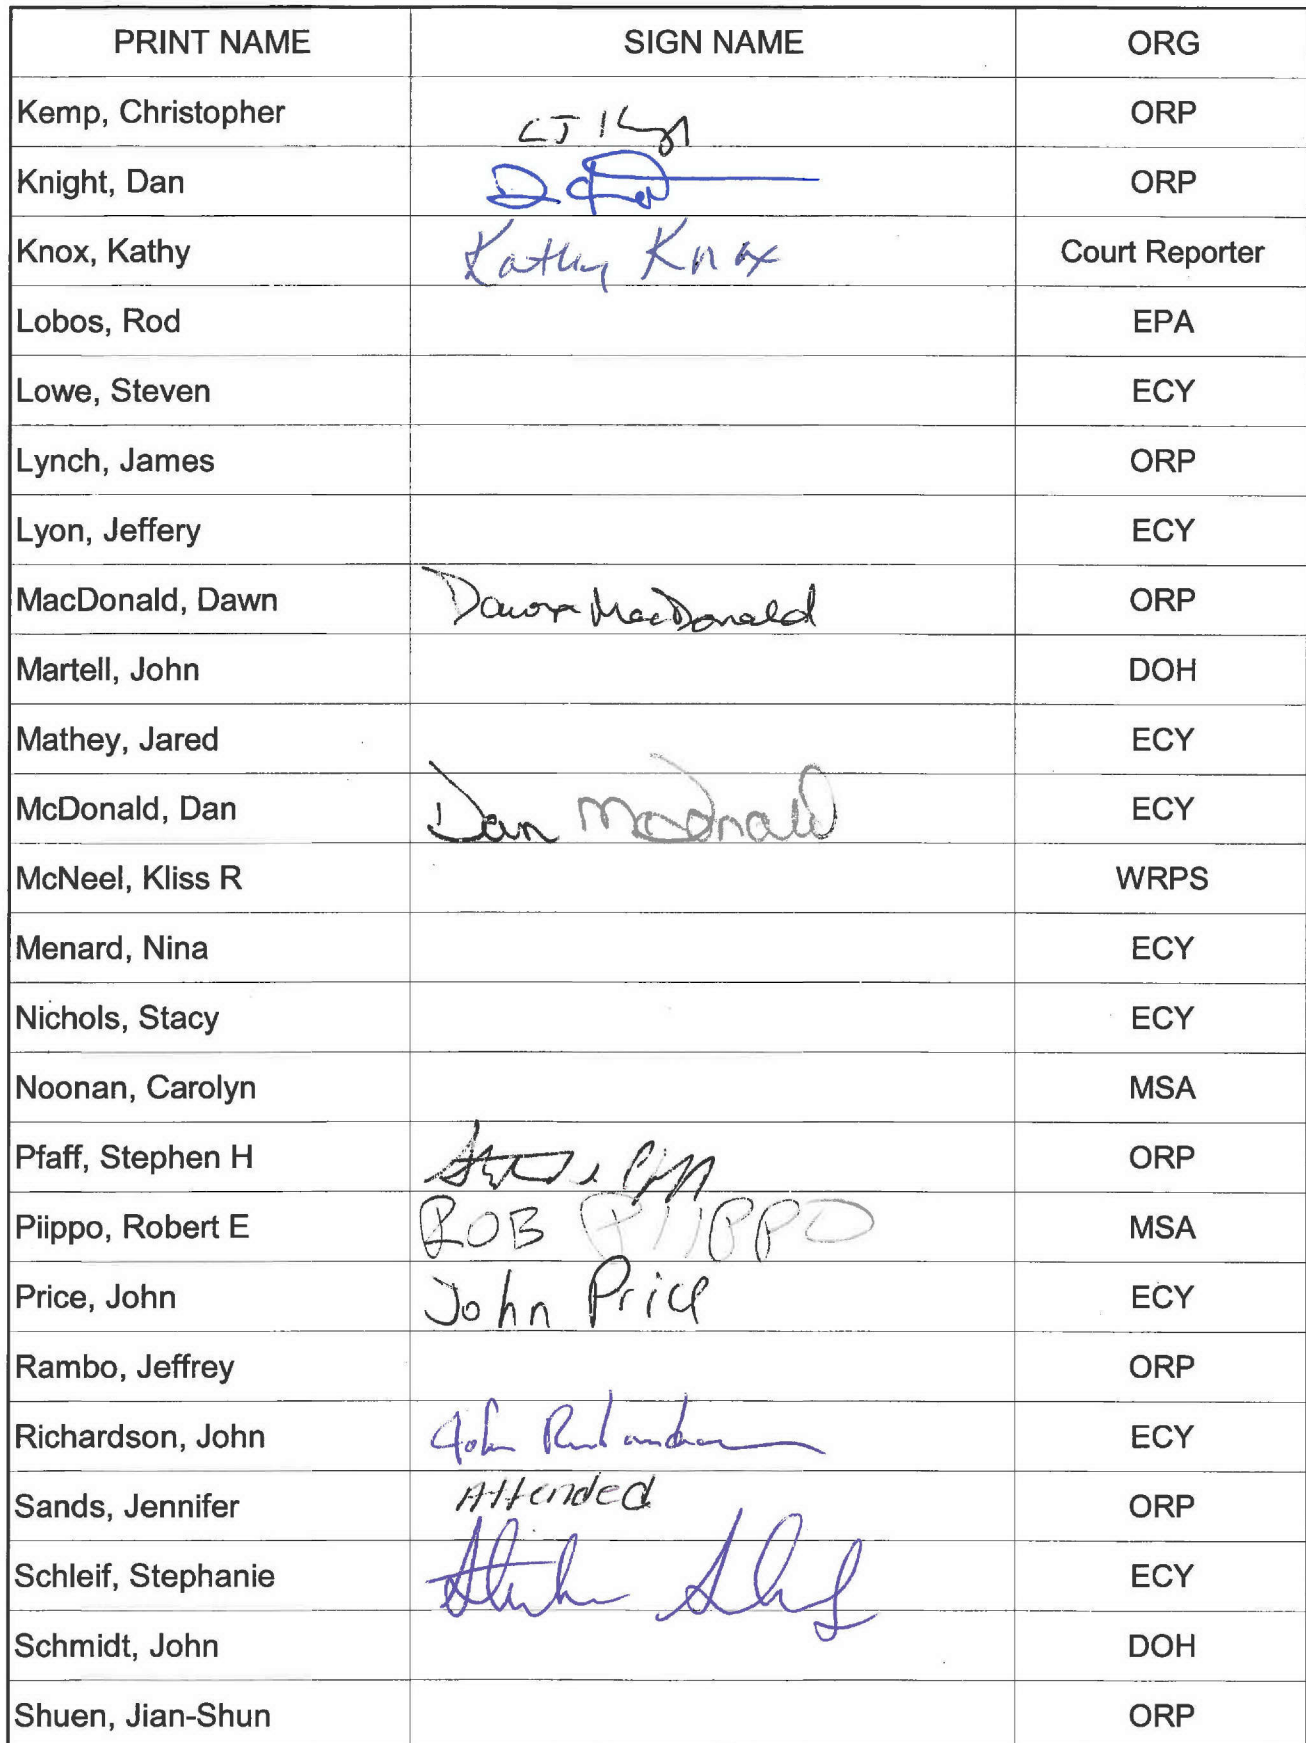 PRINT NAME SIGN NAME ORG
Kemp, Christopher CJ ORP
Knight, Dan D ORP
Knox, Kathy Kathy Knox Court Reporter
Lobos, Rod EPA
Lowe, Steven ECY
Lynch, James ORP
Lyon, Jeffery ECY
MacDonald, Dawn Dawn MacDonald ORP
Martell, John DOH
Mathey, Jared ECY
McDonald, Dan Dan McDonald ECY
McNeel, Kliss R WRPS
Menard, Nina ECY
Nichols, Stacy ECY
Noonan, Carolyn MSA
Pfaff, Stephen H ORP
Piippo, Robert E ROB PIIPPO MSA
Price, John John Price ECY
Rambo, Jeffrey ORP
Richardson, John John Richardson ECY
Sands, Jennifer Attended ORP
Schleif, Stephanie ECY
Schmidt, John DOH
Shuen, Jian-Shun ORP